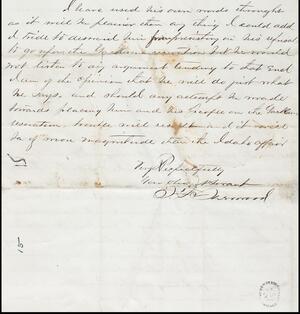 I have used his own words thought
as it will be plainer than any thing I could add
I tried to disuade him from persisting in his refusal
to go upon the reservation but he would
not listen to any argument tending to that End
I am of the opinion that he will do just what
he says, and should any attempt be made
towards placing him and his People on the
reservation, trouble will result and it will
be of more magnitude than the Idaho affair
Very Respectfully
Your Obt Servant
15